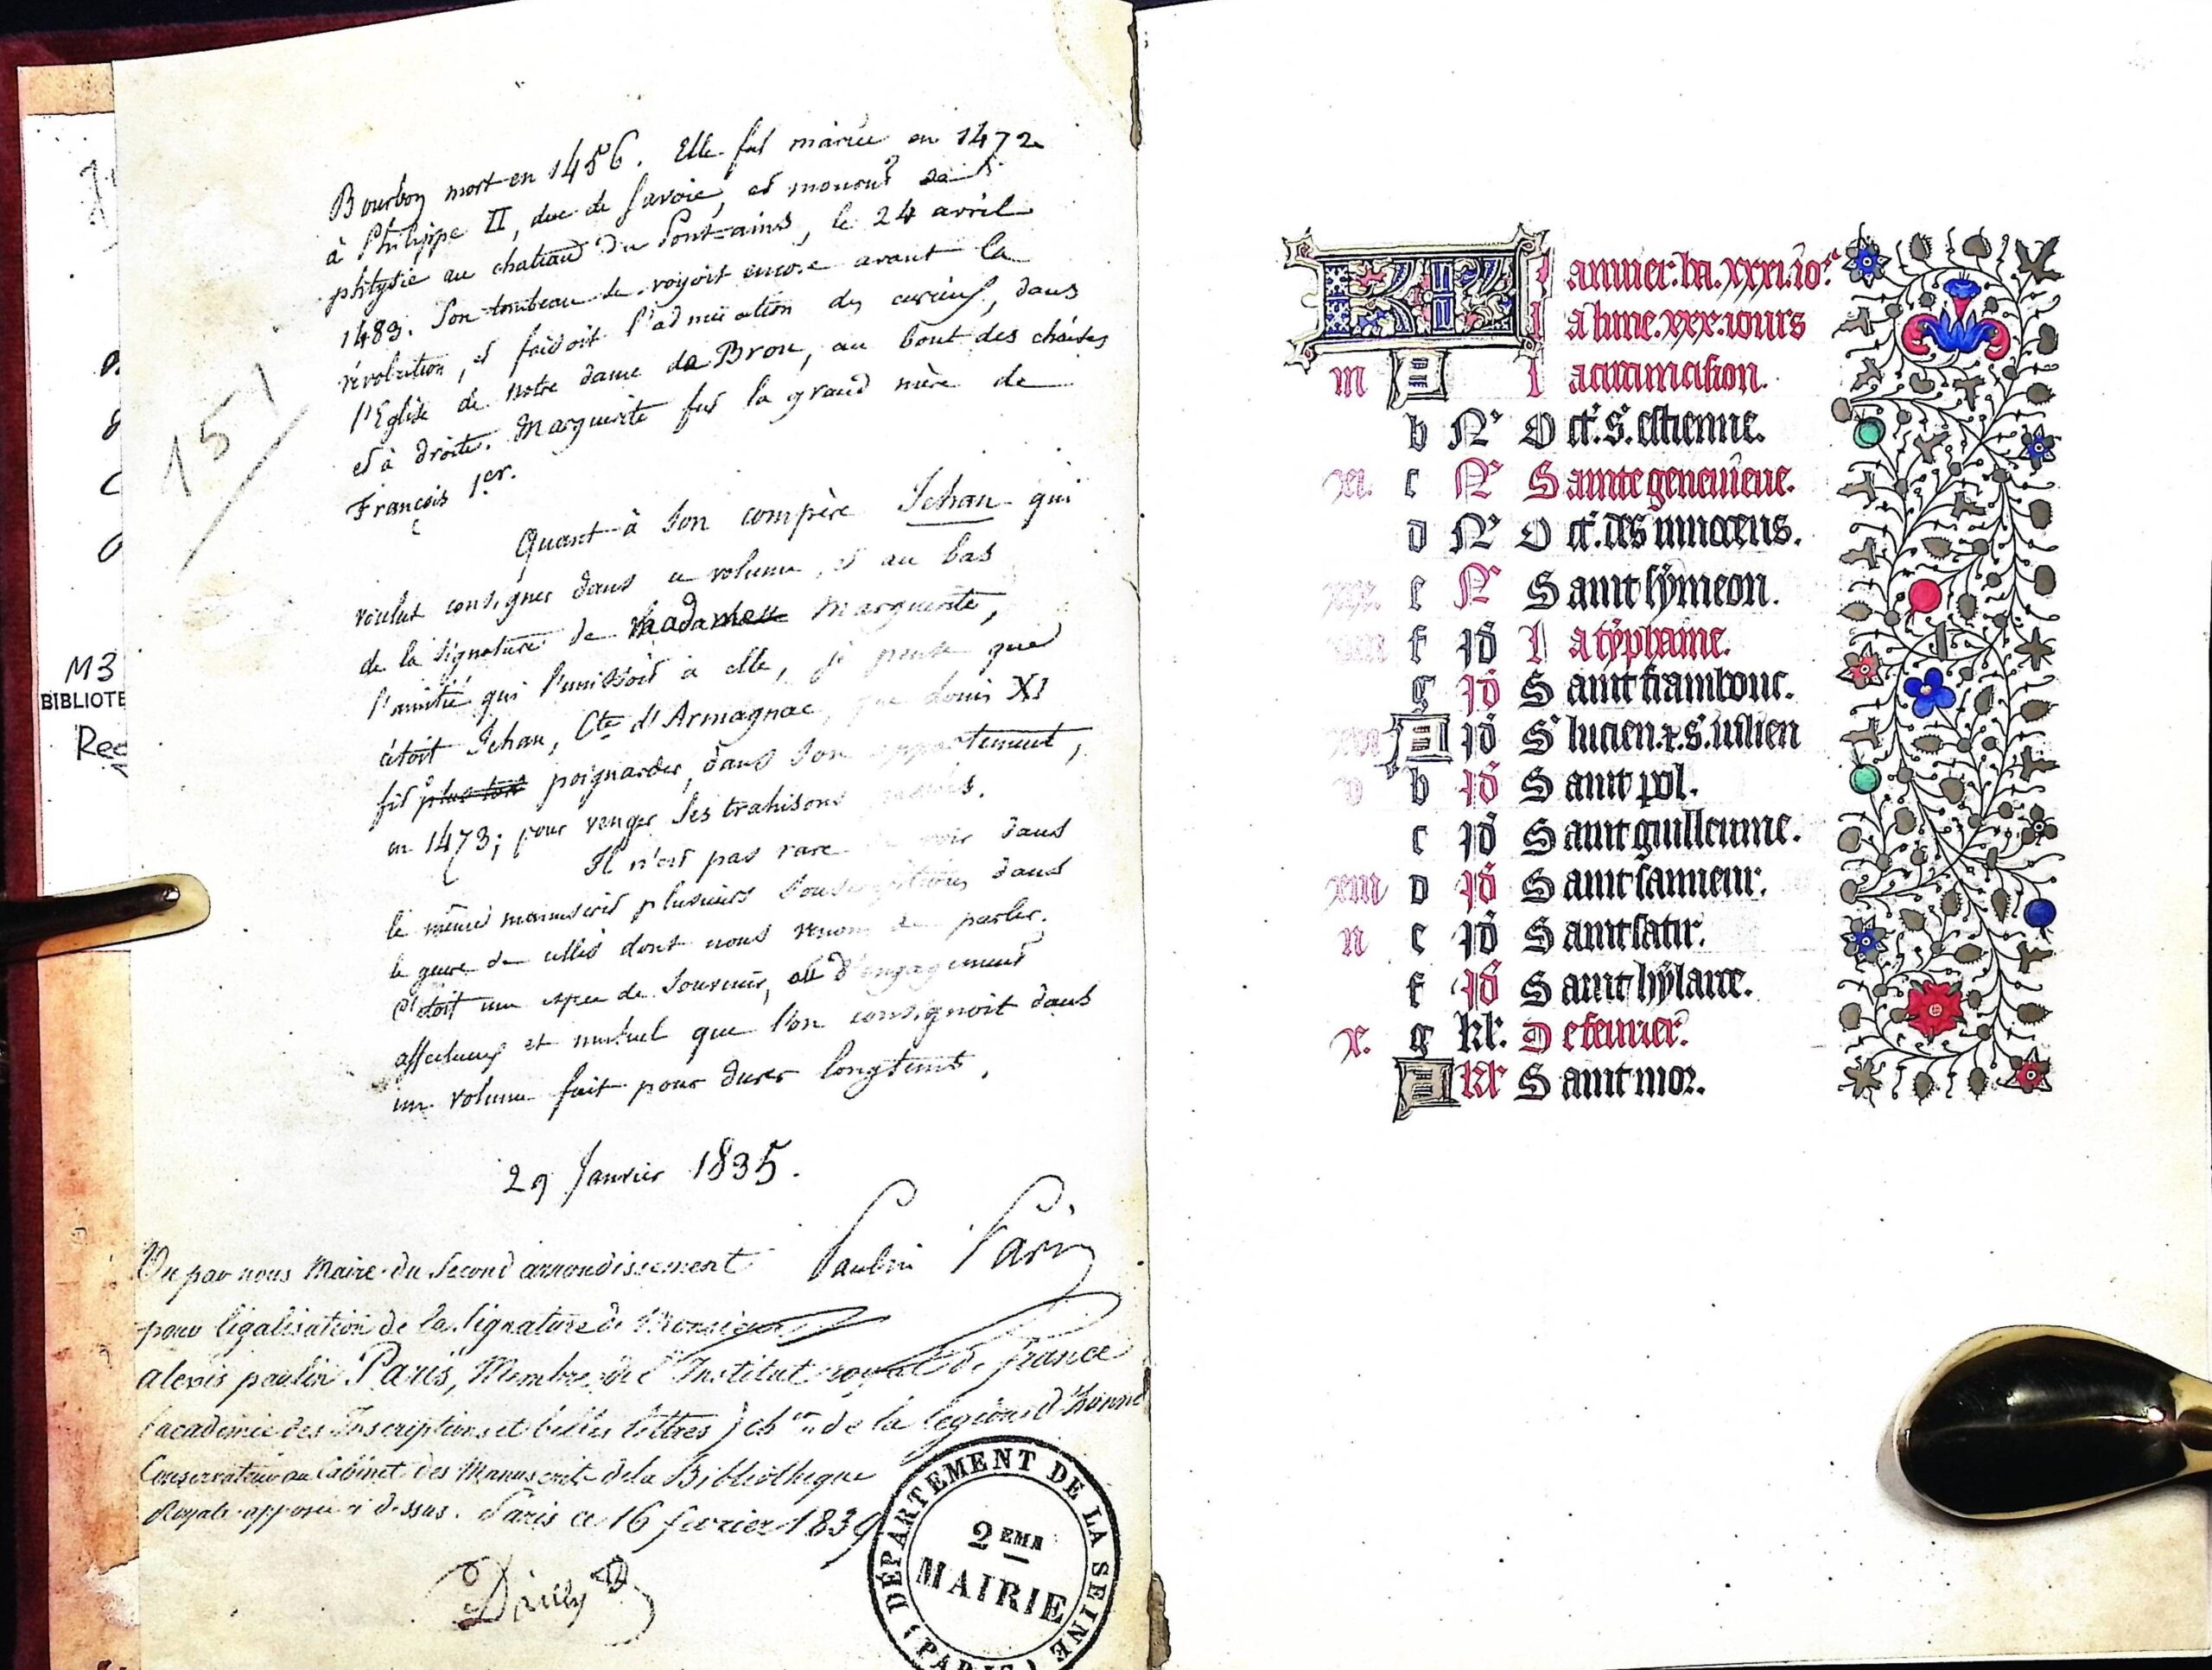 Bourbon mort en 1456. Elle fut mariée en 1472
à Philippe II, duc de Savoie, et mourut de
phtysie au chateau du Pont-ains, le 24 avril
1483. Son tombeau se voyoit encore avant la
révolution, et faisoit l'admiration des curieux, dans
l'Eglise de notre dame de Brou, au bout des chaises
et à droite. Marguerite fut la grand mère de
François 1er.
Quant à son compère Jehan qui
voulut consigner dans ce volume, et au bas
de la signature de Madame Marguerite,
l'amitié qui l'unissoit à elle, je pense que
c'étoit Jehan, Cte d'Armagnac, que Louis XI
fit plus tard poignarder, dans son appartement,
en 1473; pour venger ses trahisons
Il n'est pas rare de voir dans
le même manuscrit plusieurs souscriptions dans
le genre de celles dont nous venons de parler.
C'étoit une espece de souvenir, et d'engagement
affectueux et mutuel que l'on consignoit dans
un volume fait pour durer longtems.
29 Janvier 1835.
Paulin Paris
Vu par nous Maire du Second arrondissement
pour légalisation de la signature de Monsieur
alexis paulin Paris, Membre de l'Institut royal de france
(académie des Inscriptions et belles lettres) cher de la légion d'honneur
Conservateur au Cabinet des Manuscrits de la Bibliothèque
Royale apposée ci dessus. Paris ce 16 fevrier 1839
DÉPARTEMENT DE LA SEINE
2EME
MAIRIE
(PARIS)
15
M3
BIBLIOTE
Rec
KL Januier. ha. xxxi. io.
La lune. xxx. iours
A La circumcision.
b N' Oct'. s'. estienne.
xi. c N' Sainte geneuieue.
d N' Oct'. des innocens.
e N' Saint symeon.
f id La typhaine.
g id Saint frambouc.
A id S' lucien. & s'. iulien
b id Saint pol.
c id Saint guilleume.
xiii d id Saint sauueur.
ii e id Saint satir.
f id Saint hylaire.
x. g kl: De feurier.
A kl Saint mor.